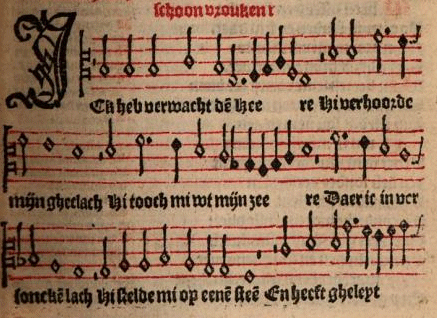 schoon vrouken r
ICk heb verwacht dē Hee re Hi verhoorde
mijn gheclach Hi tooch mi wt mijn zee re Daer ic in ver
sonckē lach Hi stelde mi op eenē steē En heeft gheleyt